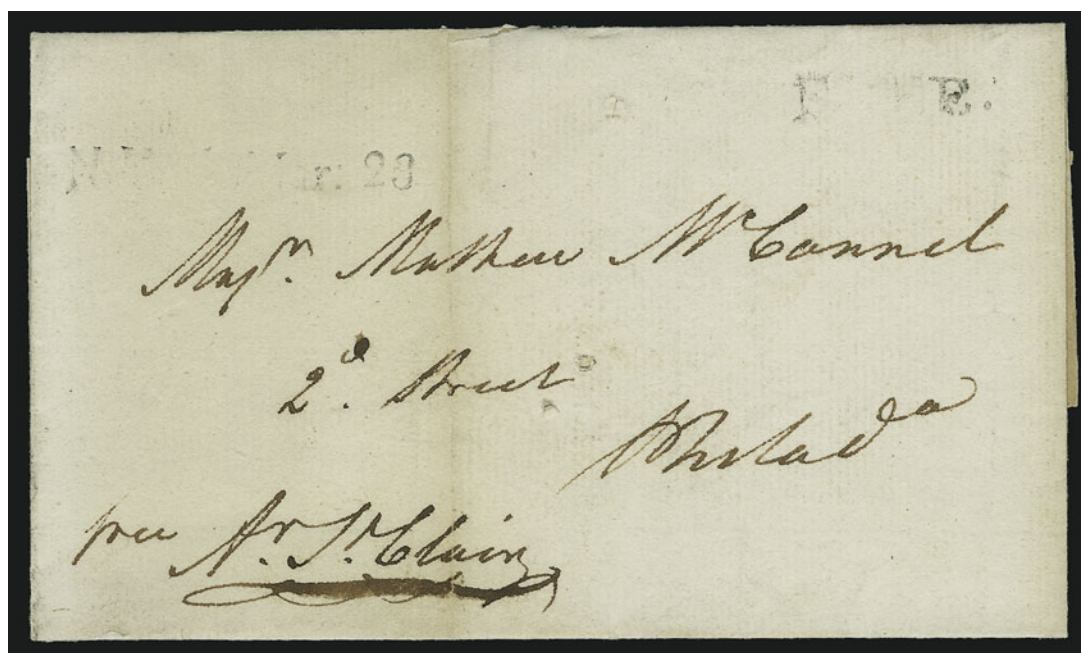 F R.
N. ar: 28
Majr. Mathew McConnel
2d. Street
Philada
free Ar. St. Clair